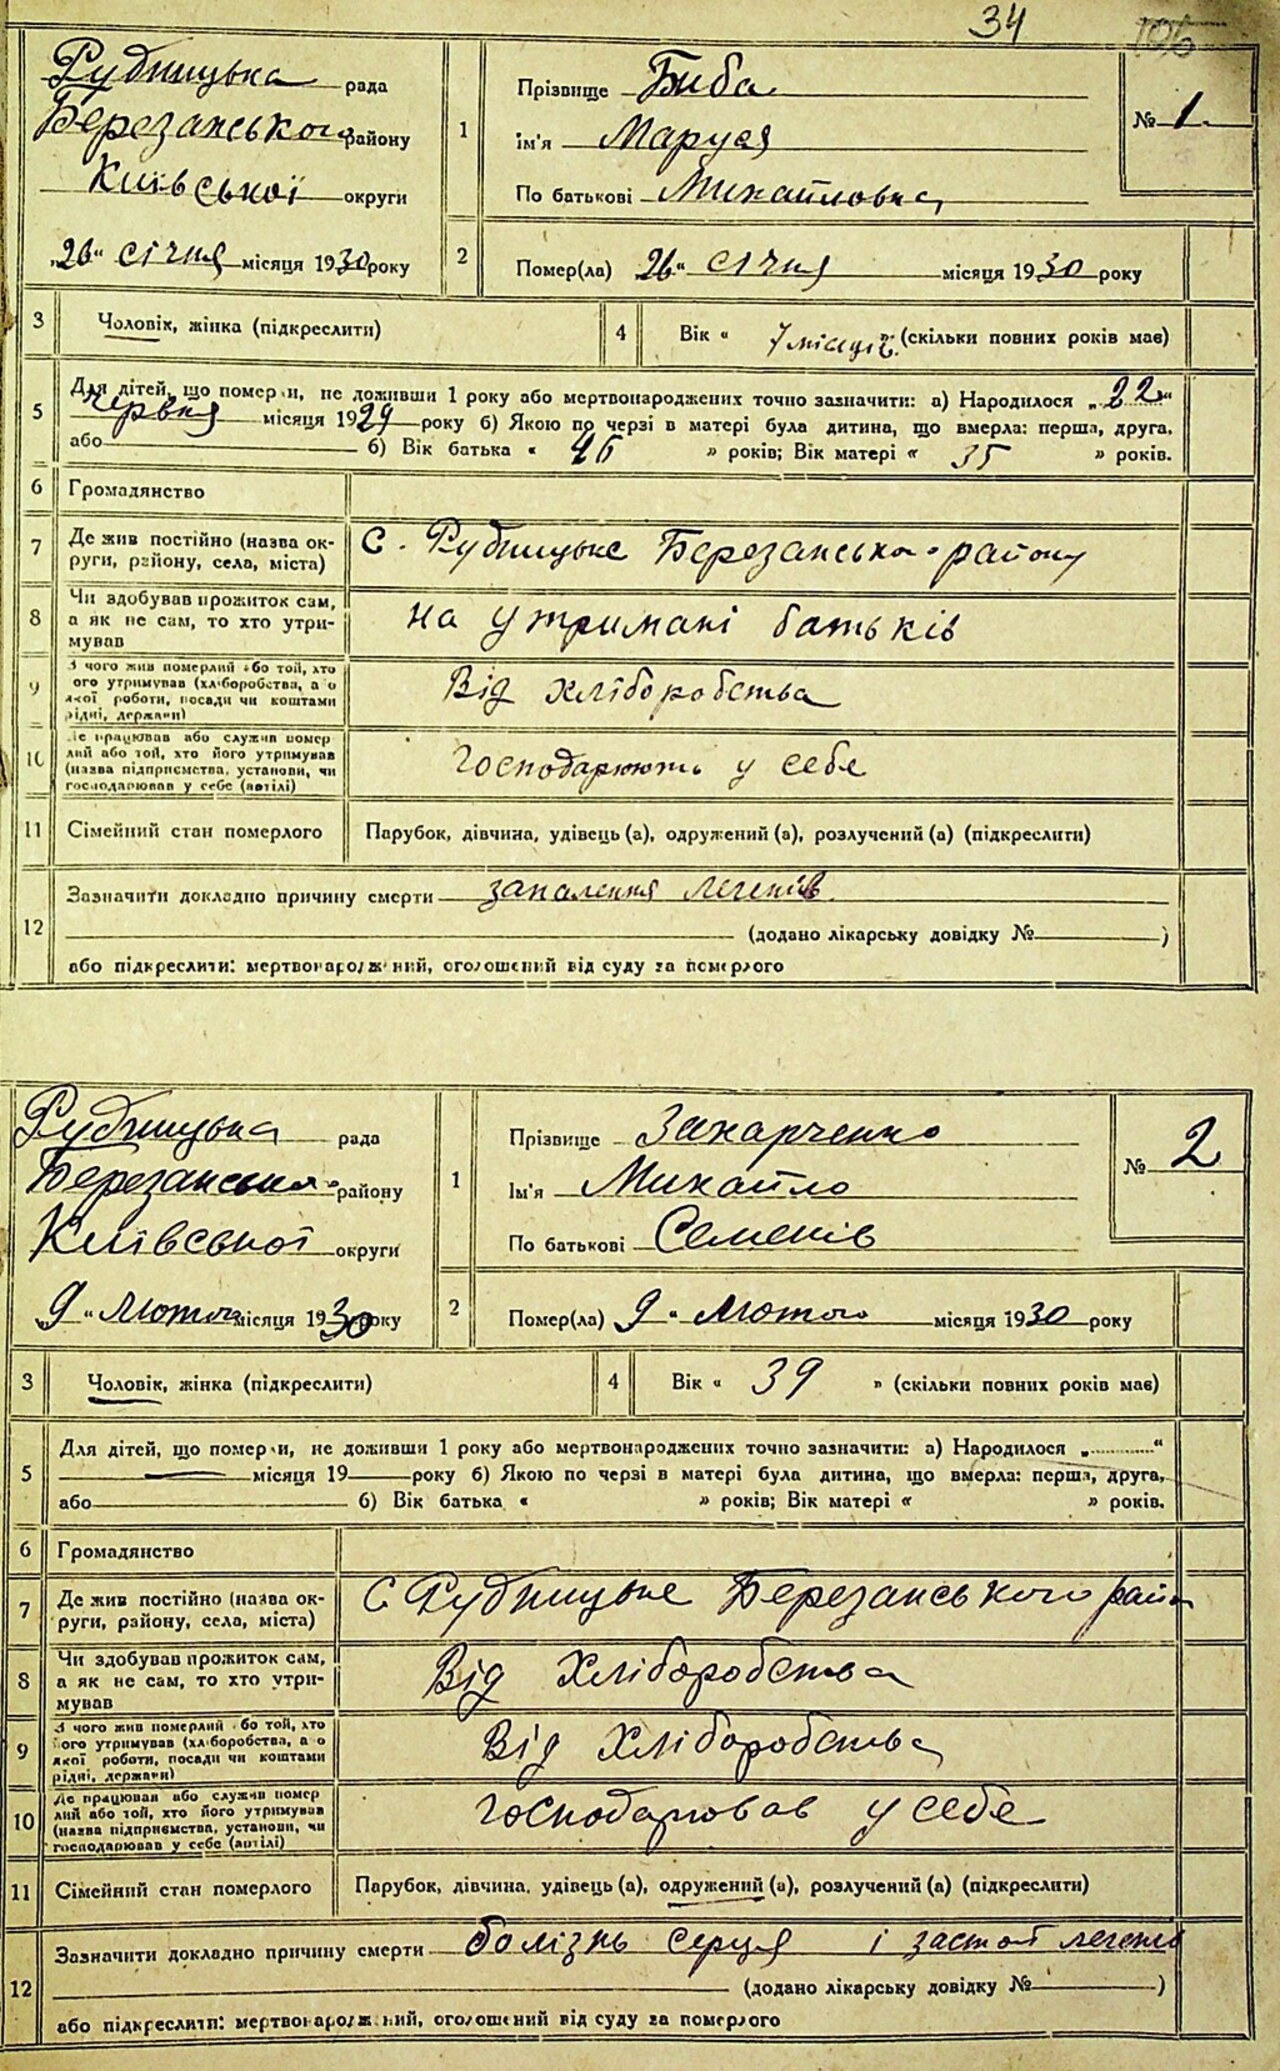 34
106
Рудницька рада
Березанського району
Київської округи
„26“ січня місяця 1930 року
1
Прізвище Биба
ім'я Маруся
По батькові Михайловна
№ 1.
2
Помер(ла) 26“ січня місяця 1930 року
3 Чоловік, жінка (підкреслити)
4 Вік « 7 місяців » (скільки повних років має)
5
Для дітей, що померли, не доживши 1 року або мертвонароджених точно зазначити: а) Народилося „22“
червня місяця 1929 року б) Якою по черзі в матері була дитина, що вмерла: перша, друга,
або б) Вік батька « 46 » років; Вік матері « 35 » років.
6 Громадянство
7 Де жив постійно (назва ок-
руги, району, села, міста)
С. Рудницьке Березанського району
8 Чи здобував прожиток сам,
а як не сам, то хто утри-
мував
на утримані батьків
9 З чого жив померлий або той, хто
його утримував (хліборобства, а о
якої роботи, посади чи коштами
рідні, держави)
Від хліборобства
10 Де працював або служив помер
лий або той, хто його утримував
(назва підприємства, установи, чи
господарював у себе (артілі)
Господарюють у себе
11 Сімейний стан померлого
Парубок, дівчина, удівець (а), одружений (а), розлучений (а) (підкреслити)
12
Зазначити докладно причину смерти запалення легенів
(додано лікарську довідку № )
або підкреслити: мертвонароджений, оголошений від суду за померлого
Рудницька рада
Березансько района району
Київської округи
„9“ Лютого місяця 1930 року
1
Прізвище Захарченко
Ім'я Михайло
По батькові Семенів
№ 2
2
Помер(ла) 9“ лютого місяця 1930 року
3 Чоловік, жінка (підкреслити)
4 Вік « 39 » (скільки повних років має)
5
Для дітей, що померли, не доживши 1 року або мертвонароджених точно зазначити: а) Народилося „ “
місяця 19 року б) Якою по черзі в матері була дитина, що вмерла: перша, друга,
або б) Вік батька « » років; Вік матері « » років.
6 Громадянство
7 Де жив постійно (назва ок-
руги, району, села, міста)
С Рудницьке Березанського район
8 Чи здобував прожиток сам,
а як не сам, то хто утри-
мував
Від Хліборобства
9 З чого жив померлий або той, хто
його утримував (хліборобства, а о
якої роботи, посади чи коштами
рідні, держави)
Від Хліборобства
10 Де працював або служив помер
лий або той, хто його утримував
(назва підприємства, установи, чи
господарював у себе (артілі)
Господарював у себе
11 Сімейний стан померлого
Парубок, дівчина, удівець (а), одружений (а), розлучений (а) (підкреслити)
12
Зазначити докладно причину смерти болізнь серця і застой легенів
(додано лікарську довідку № )
або підкреслити: мертвонароджений, оголошений від суду за померлого